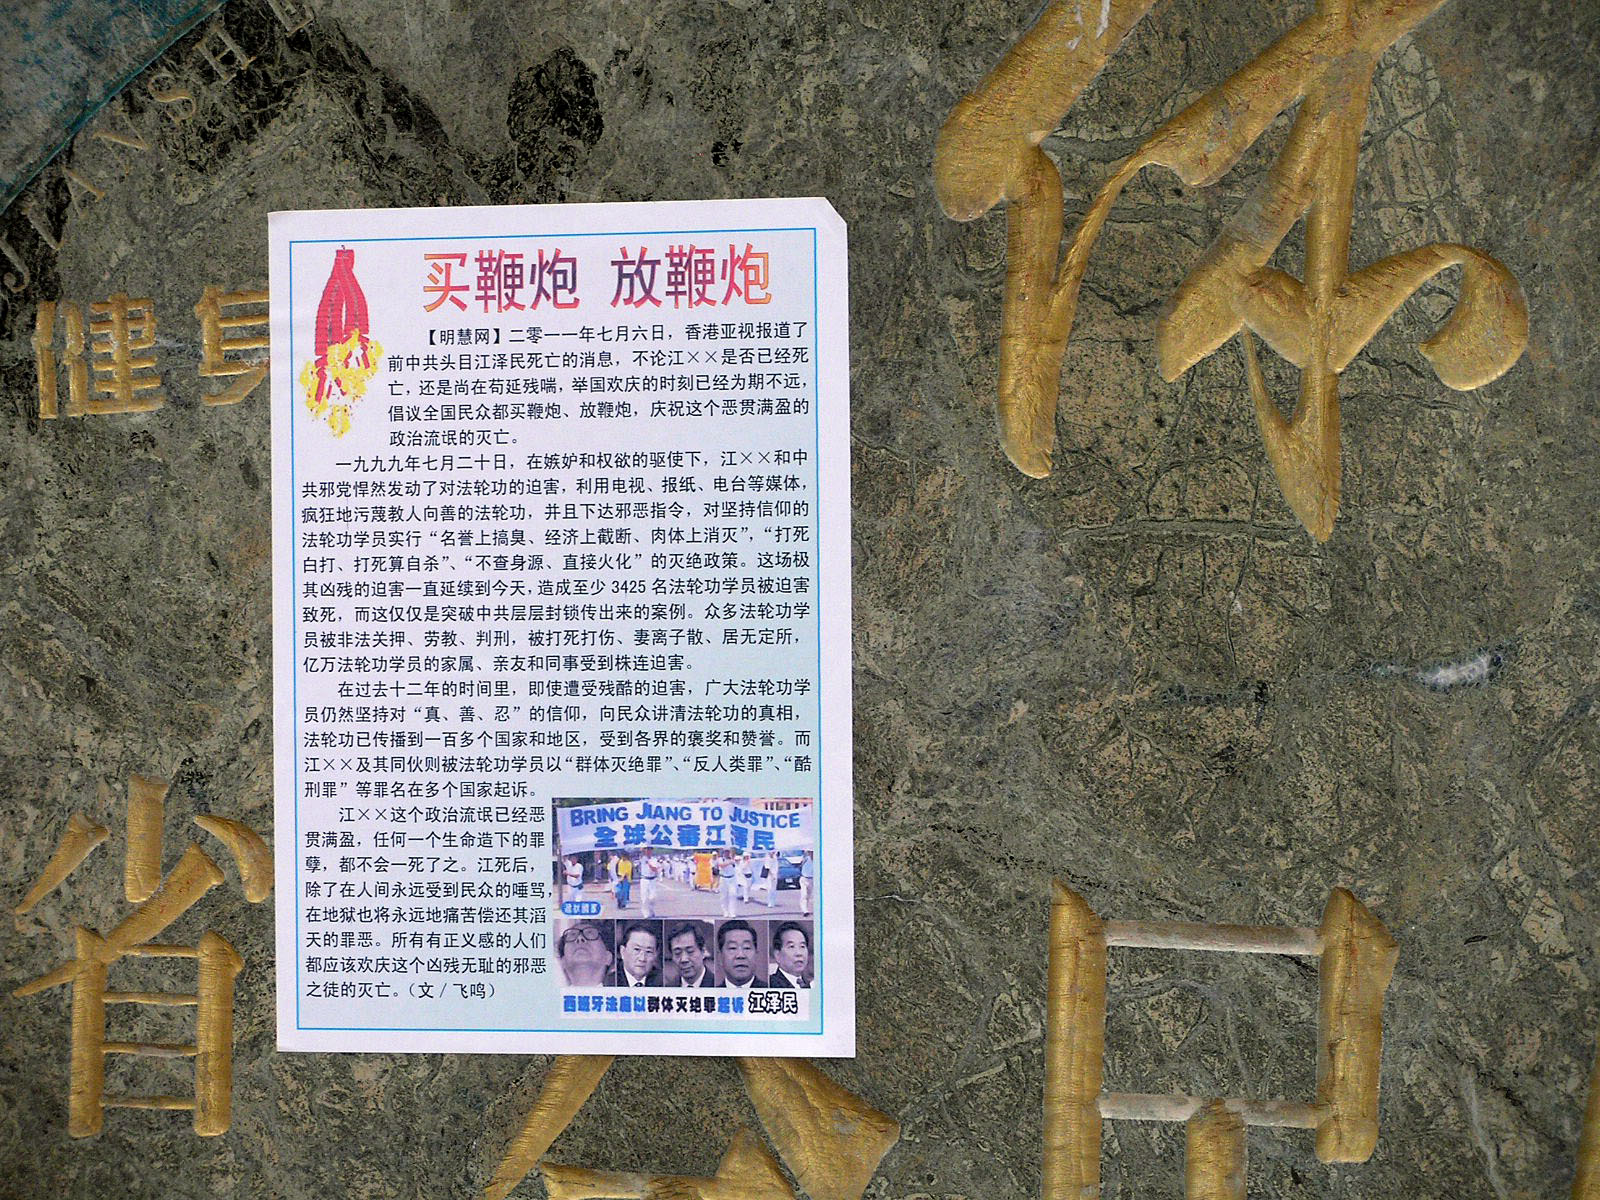 JIANSHE
健身
体
买鞭炮 放鞭炮
【明慧网】二零一一年七月六日，香港亚视报道了
前中共头目江泽民死亡的消息，不论江××是否已经死
亡，还是尚在苟延残喘，举国欢庆的时刻已经为期不远，
倡议全国民众都买鞭炮、放鞭炮，庆祝这个恶贯满盈的
政治流氓的灭亡。
一九九九年七月二十日，在嫉妒和权欲的驱使下，江××和中
共邪党悍然发动了对法轮功的迫害，利用电视、报纸、电台等媒体，
疯狂地污蔑教人向善的法轮功，并且下达邪恶指令，对坚持信仰的
法轮功学员实行“名誉上搞臭、经济上截断、肉体上消灭”，“打死
白打、打死算自杀”、“不查身源、直接火化”的灭绝政策。这场极
其凶残的迫害一直延续到今天，造成至少 3425 名法轮功学员被迫害
致死，而这仅仅是突破中共层层封锁传出来的案例。众多法轮功学
员被非法关押、劳教、判刑，被打死打伤、妻离子散、居无定所，
亿万法轮功学员的家属、亲友和同事受到株连迫害。
在过去十二年的时间里，即使遭受残酷的迫害，广大法轮功学
员仍然坚持对“真、善、忍”的信仰，向民众讲清法轮功的真相，
法轮功已传播到一百多个国家和地区，受到各界的褒奖和赞誉。而
江××及其同伙则被法轮功学员以“群体灭绝罪”、“反人类罪”、“酷
刑罪”等罪名在多个国家起诉。
江××这个政治流氓已经恶
贯满盈，任何一个生命造下的罪
孽，都不会一死了之。江死后，
除了在人间永远受到民众的唾骂，
在地狱也将永远地痛苦偿还其滔
天的罪恶。所有有正义感的人们
都应该欢庆这个凶残无耻的邪恶
之徒的灭亡。（文／飞鸣）
BRING JIANG TO JUSTICE
全球公審江澤民
西班牙法庭以群体灭绝罪起诉江泽民
省